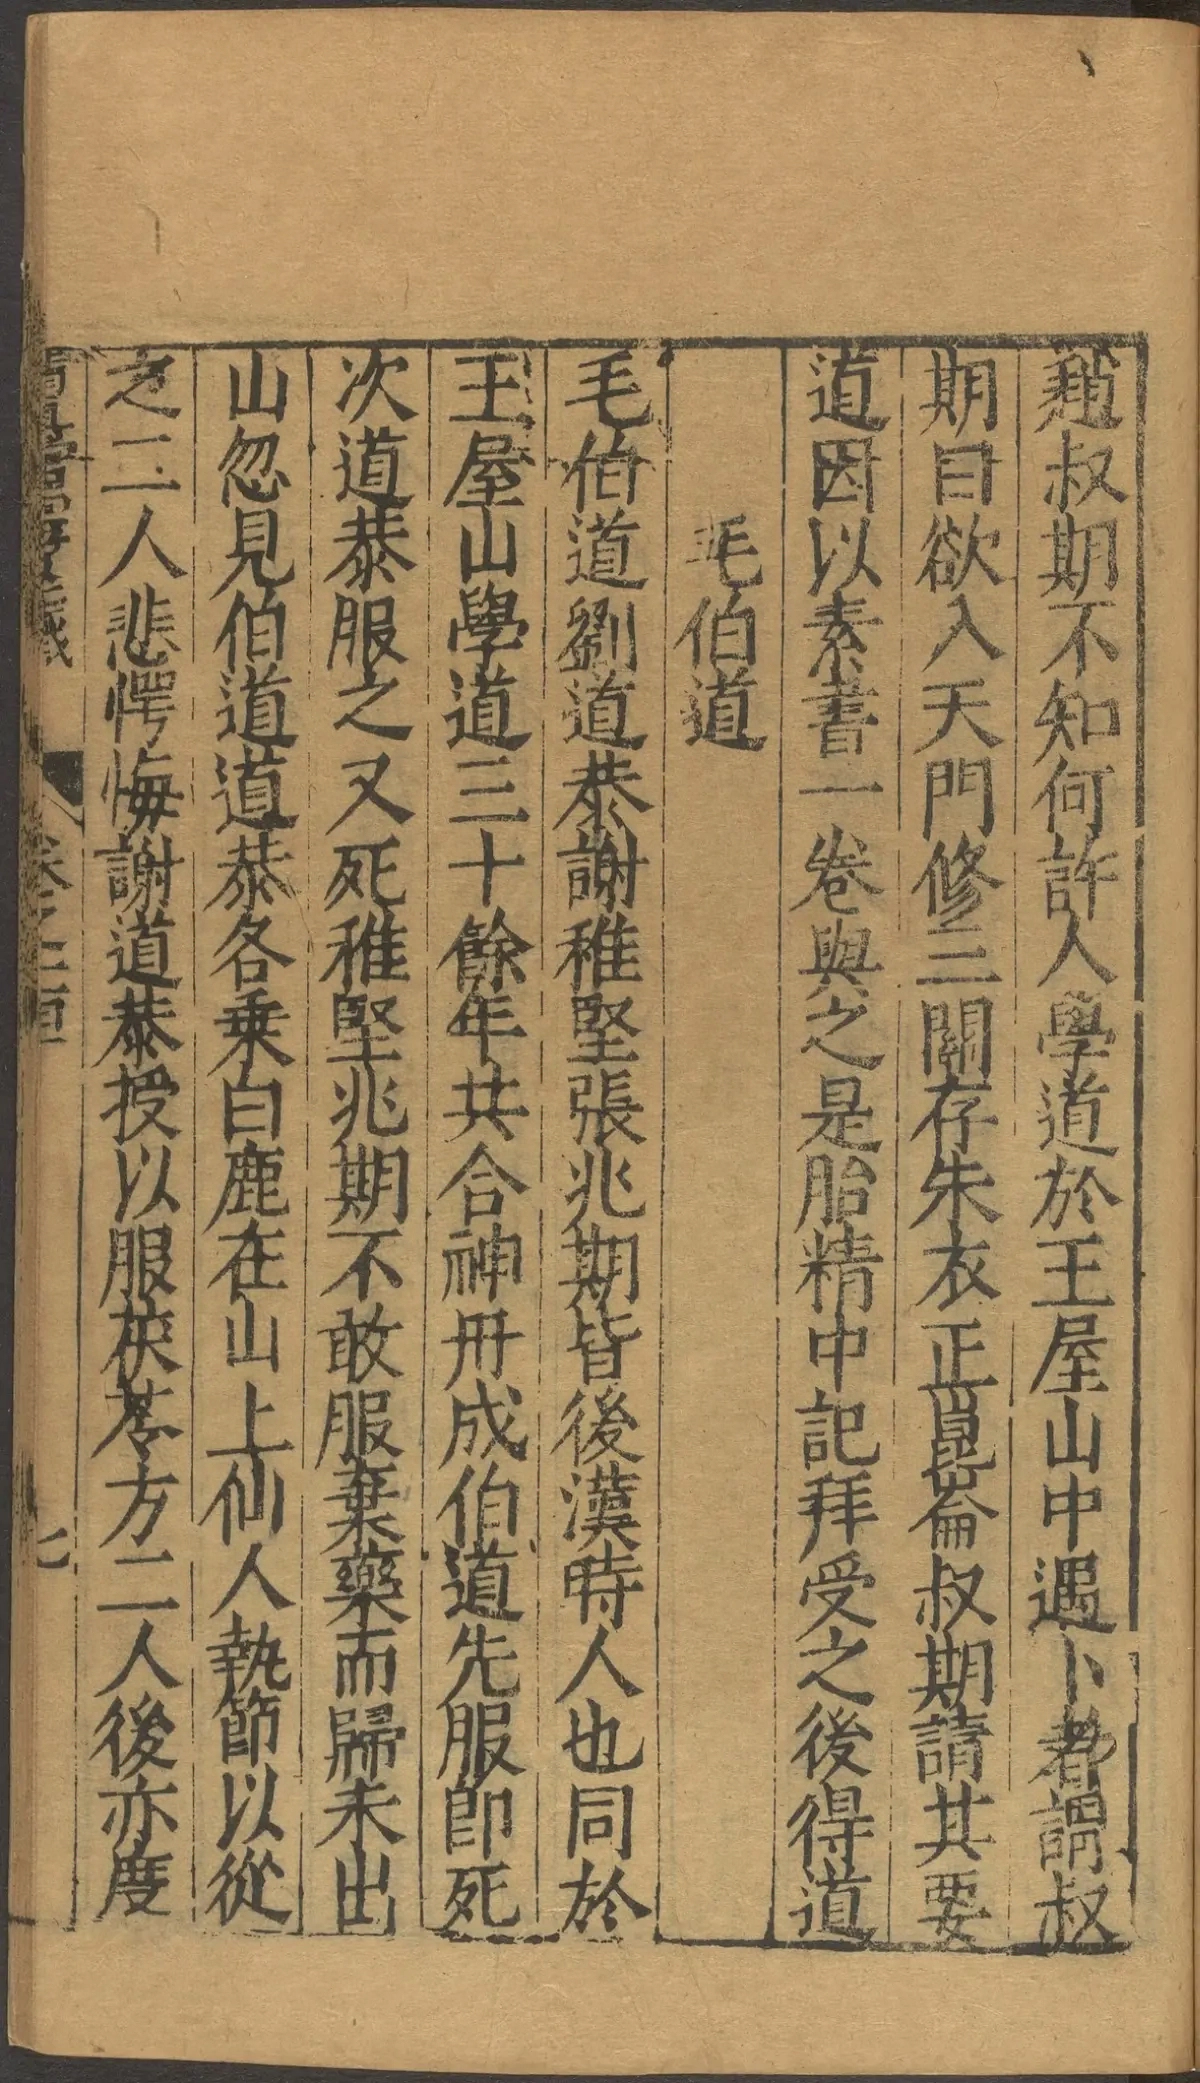 趙叔期不知何許人學道於王屋山中遇卜者謂叔
期曰欲入天門修三關存朱衣正崑崙叔期請其要
道因以素書一卷與之是胎精中記拜受之後得道
毛伯道
毛伯道劉道恭謝稚堅張兆期皆後漢時人也同於
王屋山學道三十餘年共合神丹成伯道先服即死
次道恭服之又死稚堅兆期不敢服棄藥而歸未出
山忽見伯道道恭各乘白鹿在山上仙人執節以從
之二人悲愕悔謝道恭授以服茯苓方二人後亦度
卷之上
七